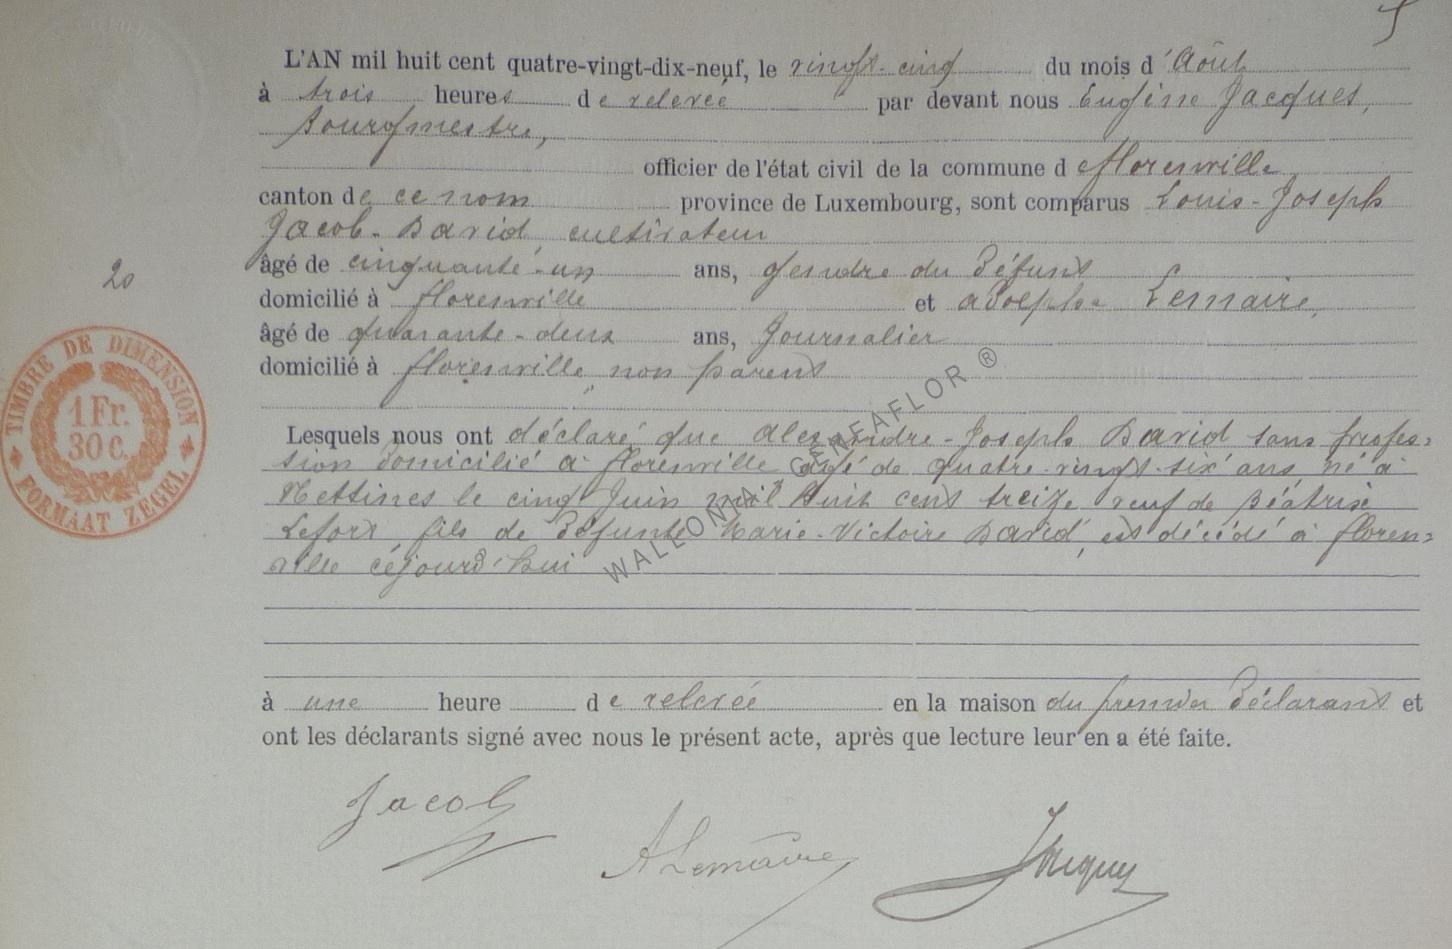 5
L'AN mil huit cent quatre-vingt-dix-neuf, le vingt-cinq du mois d'Août
à trois heures de relevée par devant nous Eugène Jacques,
Bourgmestre,
officier de l'état civil de la commune de florenville
canton de ce nom province de Luxembourg, sont comparus Louis-Joseph
Jacob-David cultivateur
âgé de cinquante-un ans, gendre du défunt
20
domicilié à florenville et adolphe Lemaire,
âgé de quarante-deux ans, Journalier
domicilié à florenville, non parent
TIMBRE DE DIMENSION
1 Fr.
30 c.
FORMAAT ZEGEL
Lesquels nous ont déclaré que alexandre-Joseph David sans profes=
sion domicilié à florenville âgé de quatre-vingt-six ans né à
le cinq Juin mil huit cent treize veuf de Béatrise
Lefort, fils de défunte Marie-Victoire David, est décédé à floren=
ville cejourd'hui
WALLONIA GENEAFLOR ®
à une heure de relevée en la maison du premier déclarant et
ont les déclarants signé avec nous le présent acte, après que lecture leur en a été faite.
Jacob
A Lemaire
Jacques